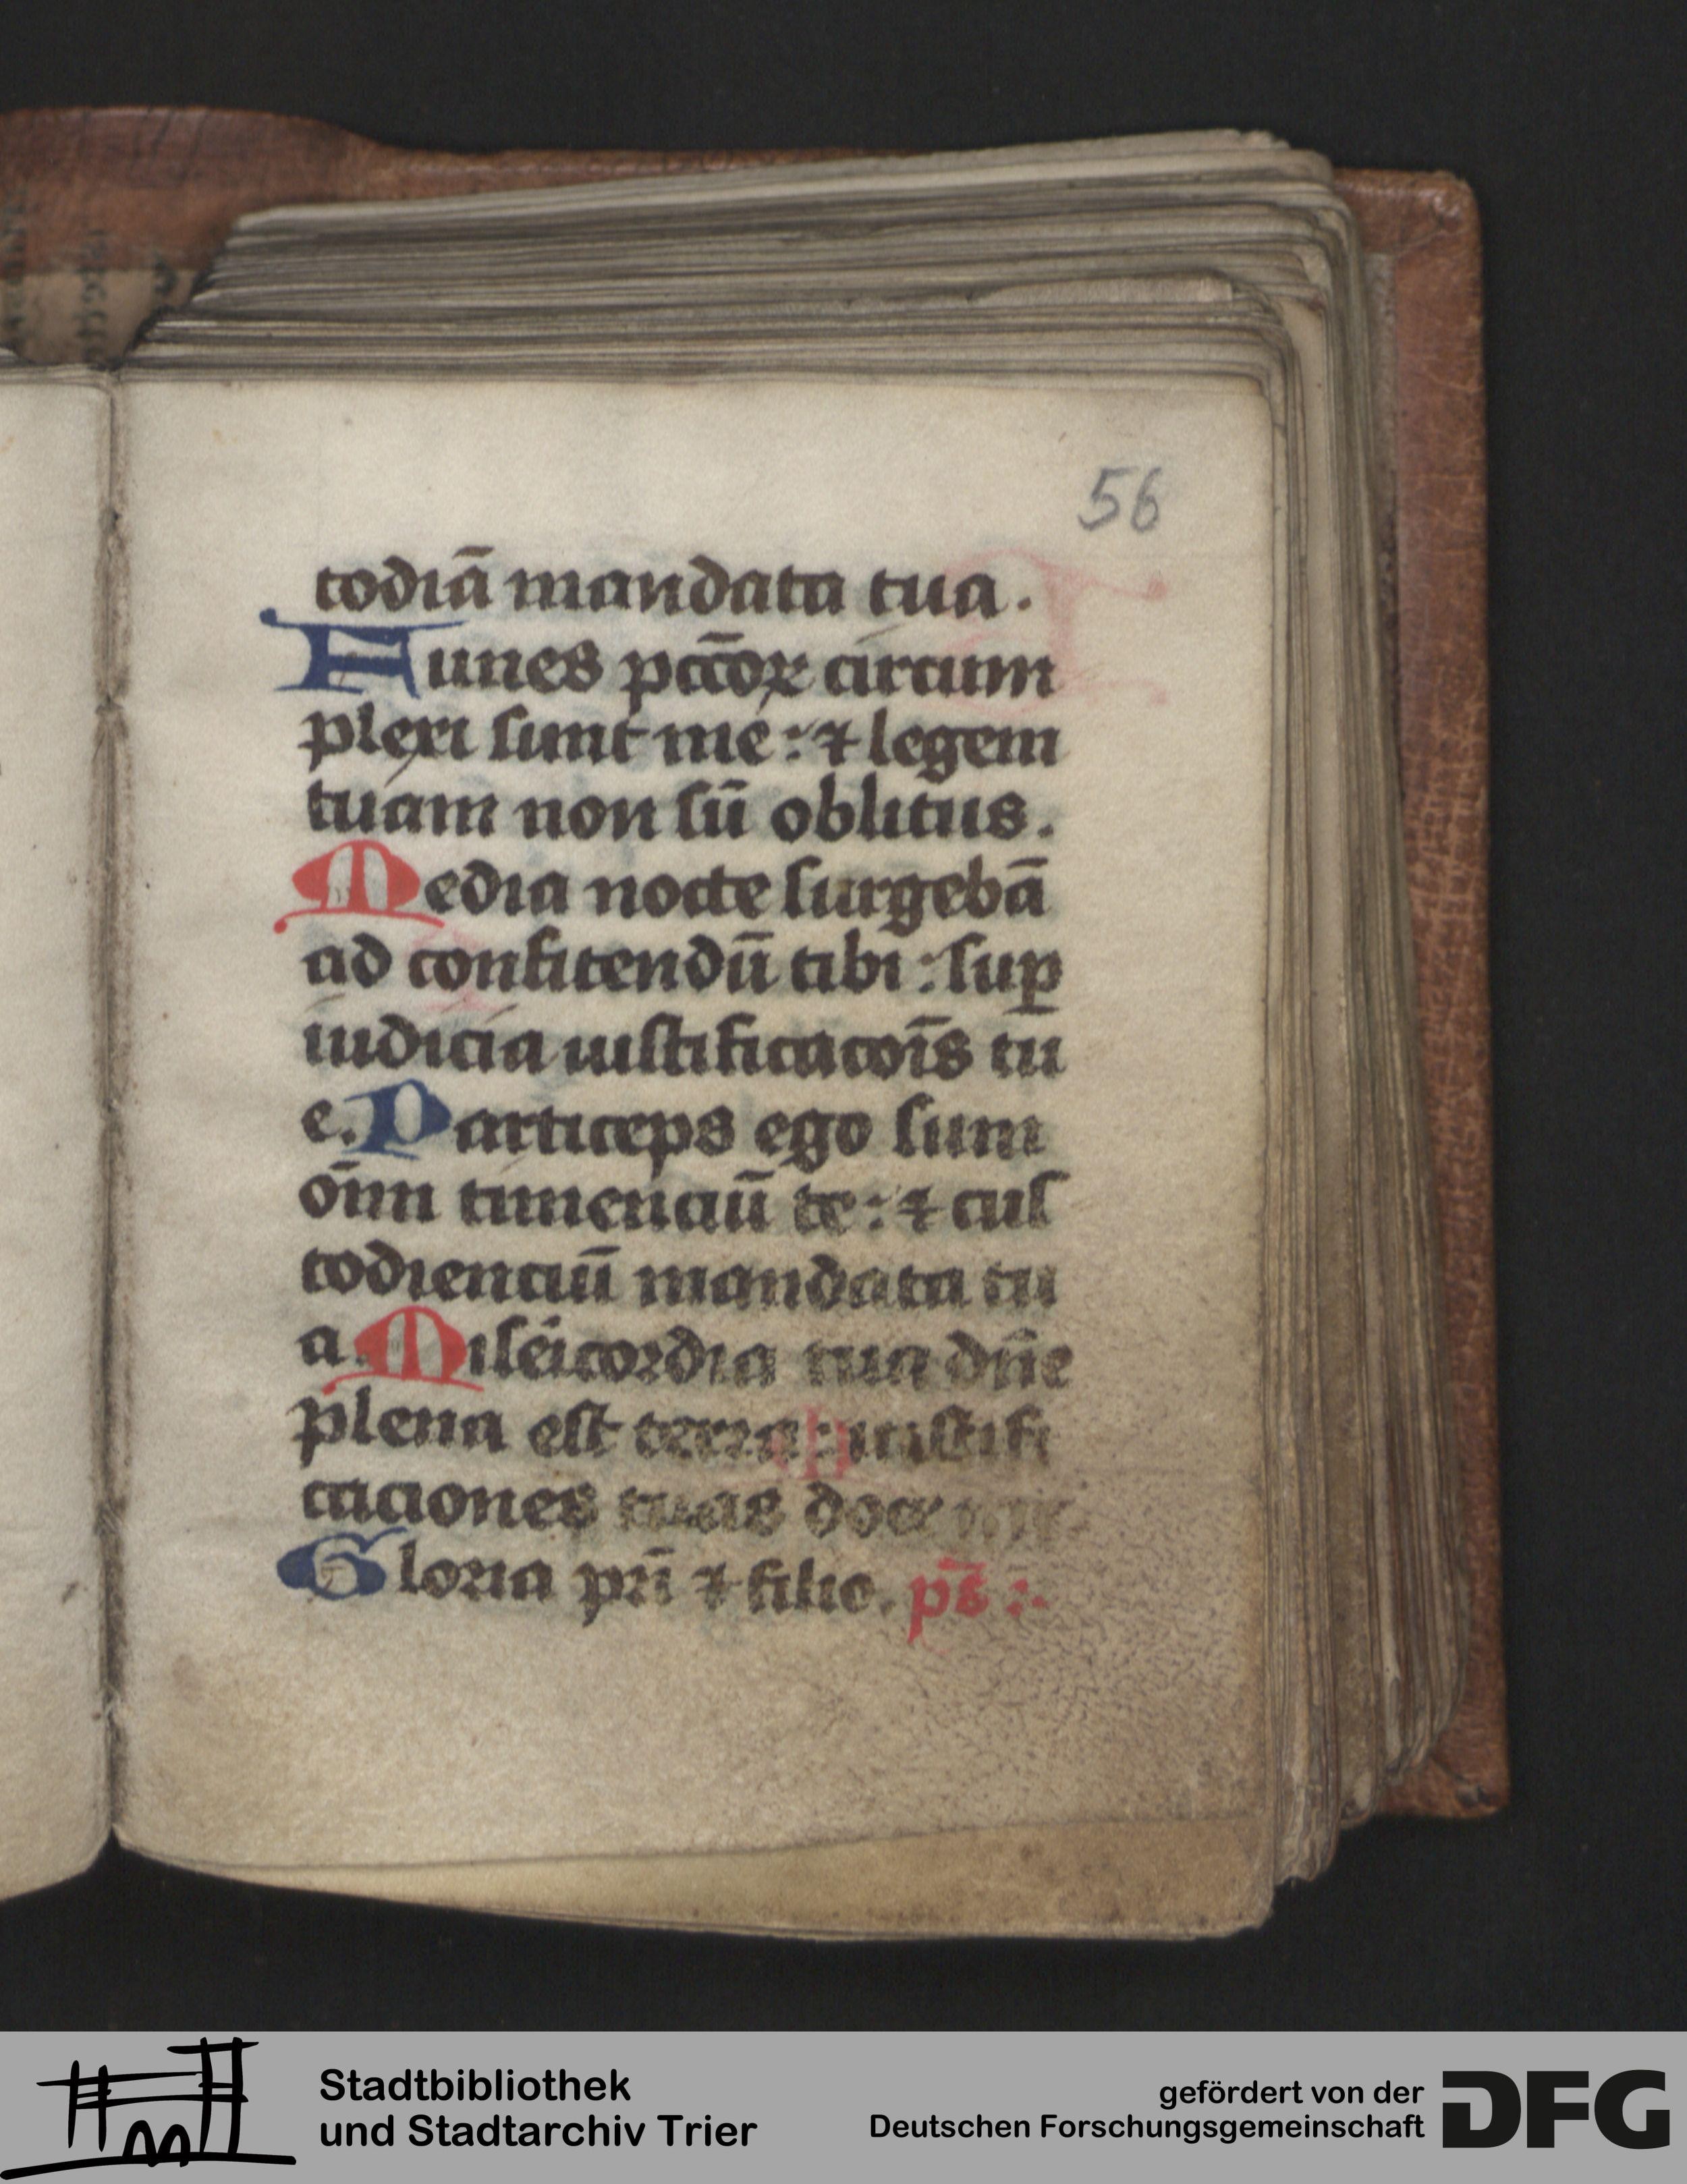 56
todiā mandata tua.
Funes pctōꝝ circum
plexi sunt me: ⁊ legem
tuam non sū oblitus.
Media nocte surgebā
ad confitendū tibi: sup̱
iudicia iustificacōīs tu
e. Particeps ego sum
oīm timenciū te: ⁊ cus
todienciū mandata tu
a. Misēicordia tua dn̄e
plena est terra: iustifi
caciones tuas doce me
Gloria pr̄i ⁊ filio. ps̄ :.
Stadtbibliothek
und Stadtarchiv Trier
gefördert von der
Deutschen Forschungsgemeinschaft
DFG